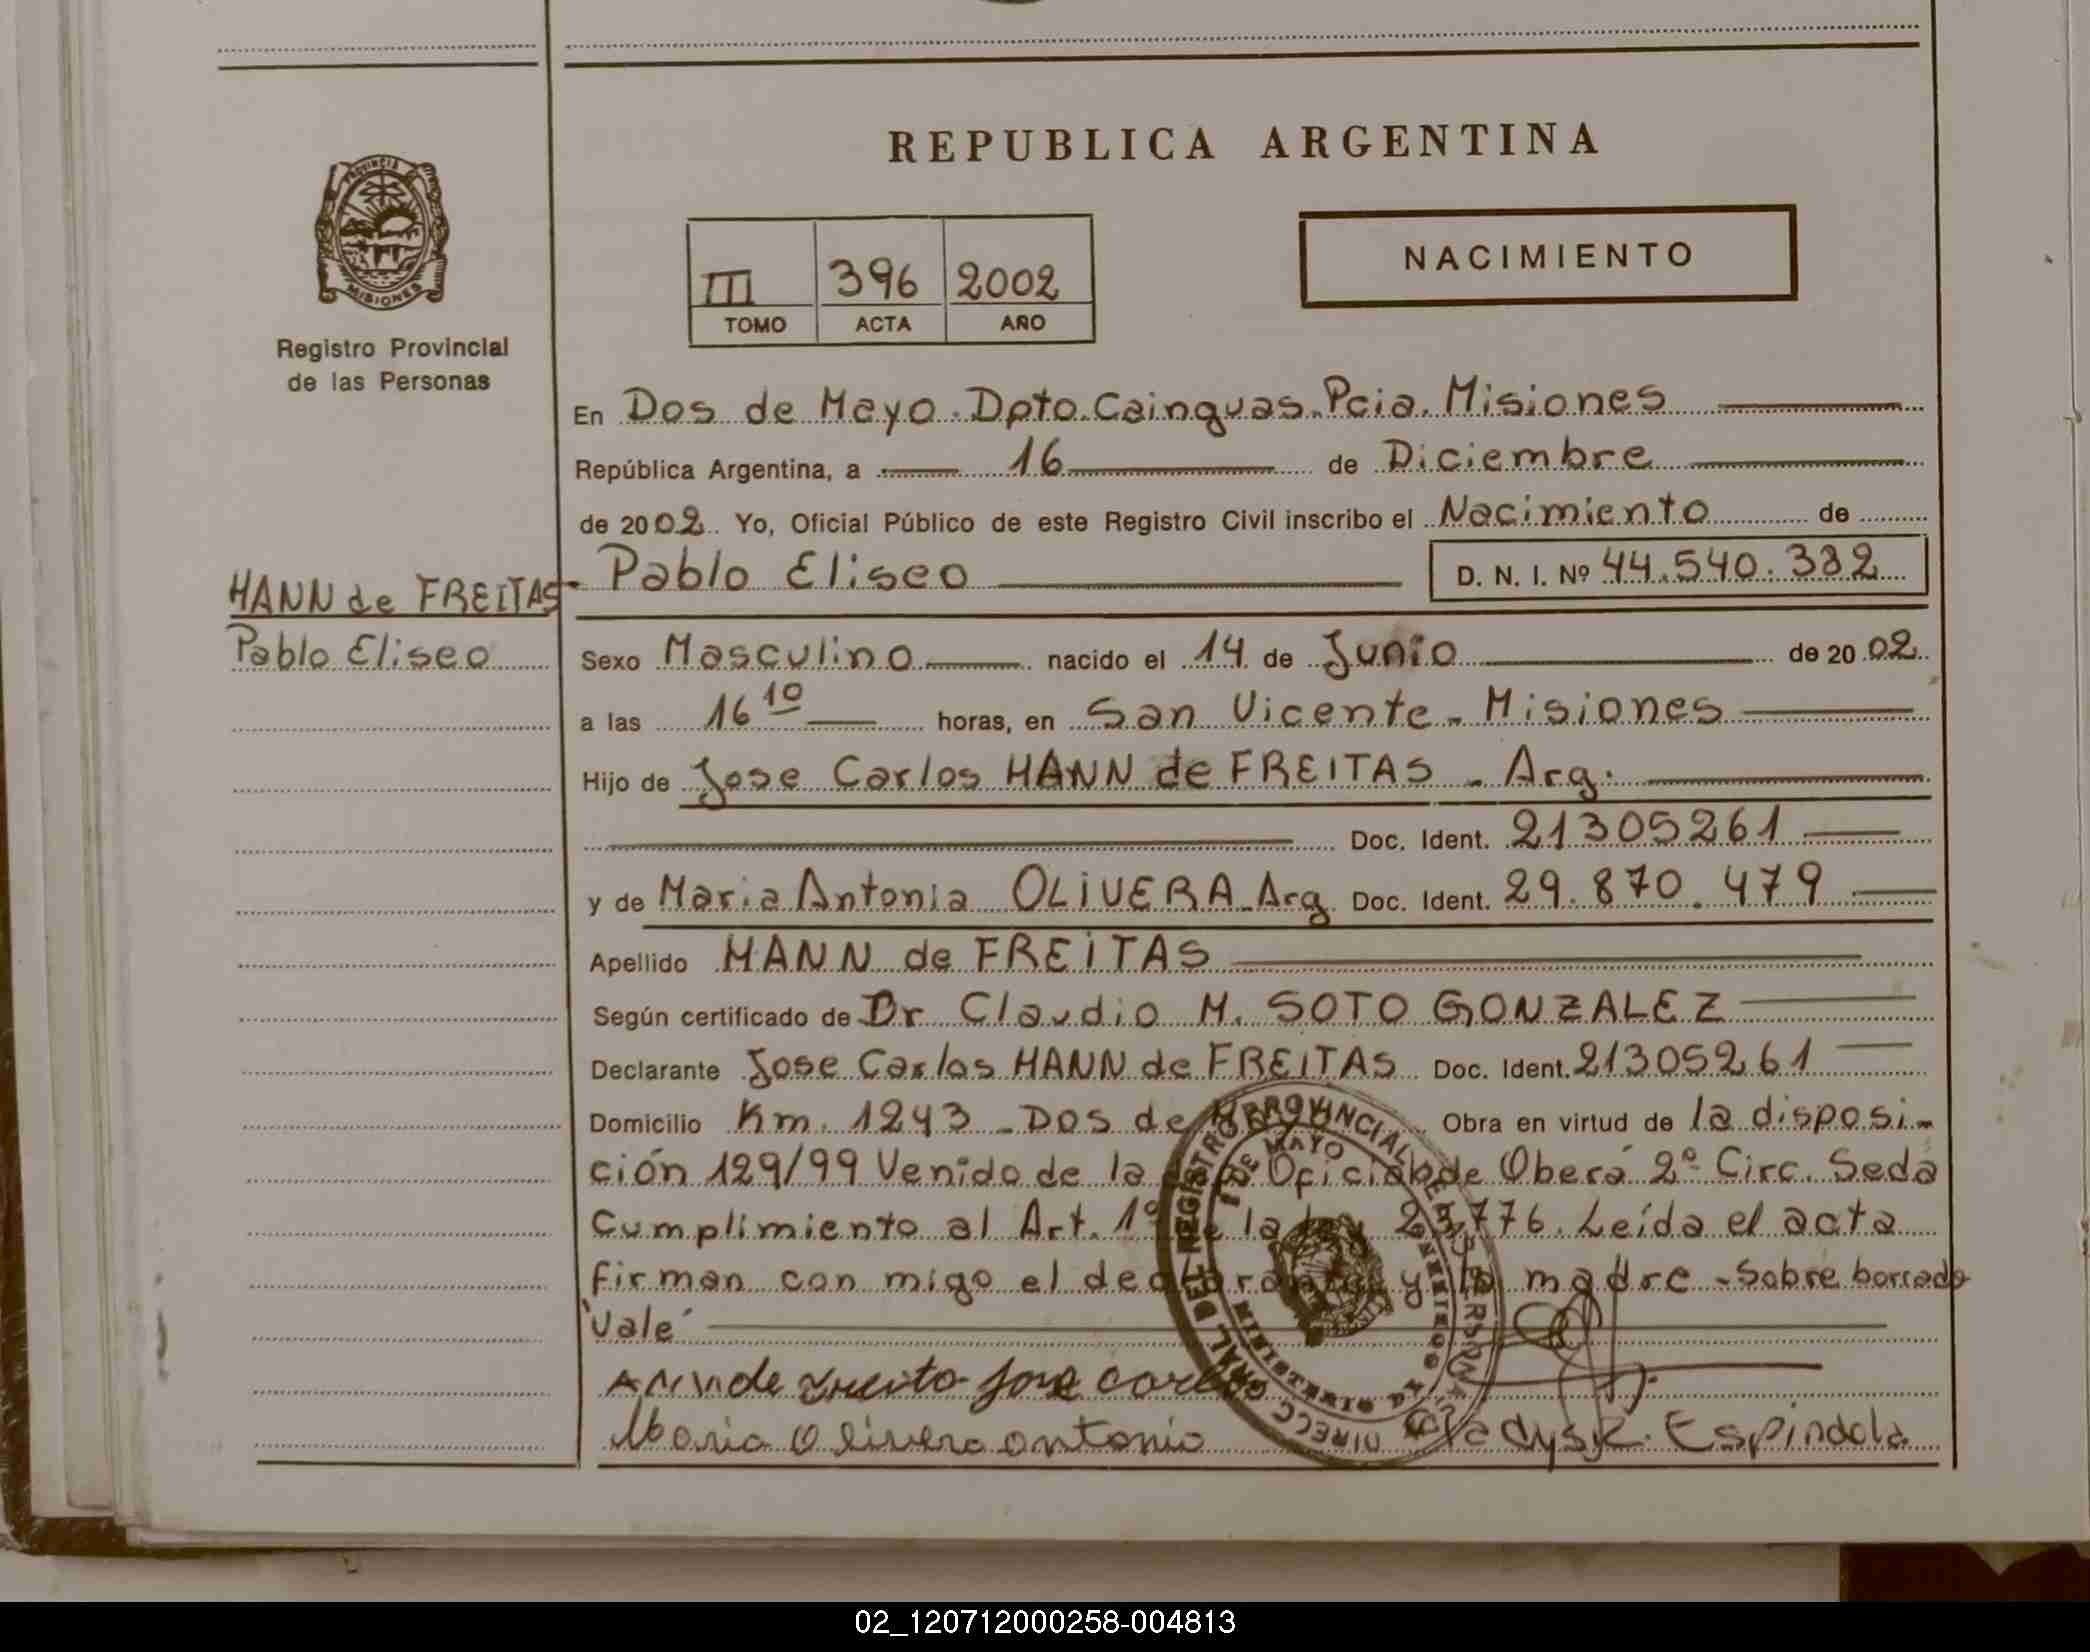 REPUBLICA ARGENTINA
PROVINCIA DE
MISIONES
Registro Provincial
de las Personas
III 396 2002
TOMO ACTA AÑO
NACIMIENTO
En Dos de Mayo. Dpto. Cainguas. Pcia. Misiones
República Argentina, a 16 de Diciembre
de 2002. Yo, Oficial Público de este Registro Civil inscribo el Nacimiento de
Pablo Eliseo D. N. I. Nº 44.540.332
HANN de FREITAS
Pablo Eliseo
Sexo Masculino nacido el 14 de Junio de 2002
a las 16 10 horas, en San Vicente - Misiones
Hijo de Jose Carlos HANN de FREITAS - Arg.
Doc. Ident. 21305261
y de Maria Antonia OLIVERA - Arg. Doc. Ident. 29.870.479
Apellido HANN de FREITAS
Según certificado de Dr Claudio M. SOTO GONZALEZ
Declarante Jose Carlos HANN de FREITAS Doc. Ident. 21305261
Domicilio Km. 1243 - Dos de Mayo Obra en virtud de la disposi-
ción 129/99 Venido de la Oficial de Oberá 2º Circ. Seda
Cumplimiento al Art. 1º de la Ley 25776. Leída el acta
firman con migo el declarante y la madre - Sobre borrado
"Vale"
Jose Carl
Maria Olivera antonia
Gladys R. Espindola
DIRECC GRAL DEL REGISTRO PROVINCIAL DE LAS PERSONAS
DE MAYO
02_120712000258-004813